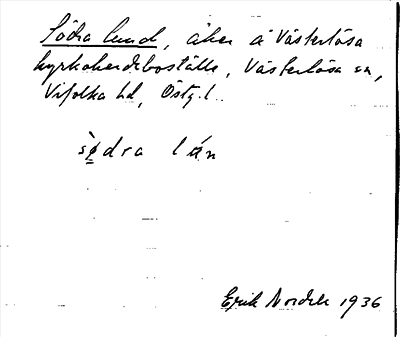 Södra lund, åker å Västerlösa
kyrkoherdeboställe, Västerlösa sn,
Vifolka hd, Östg.l.
sø̀dra lán
Erik Nordell 1936